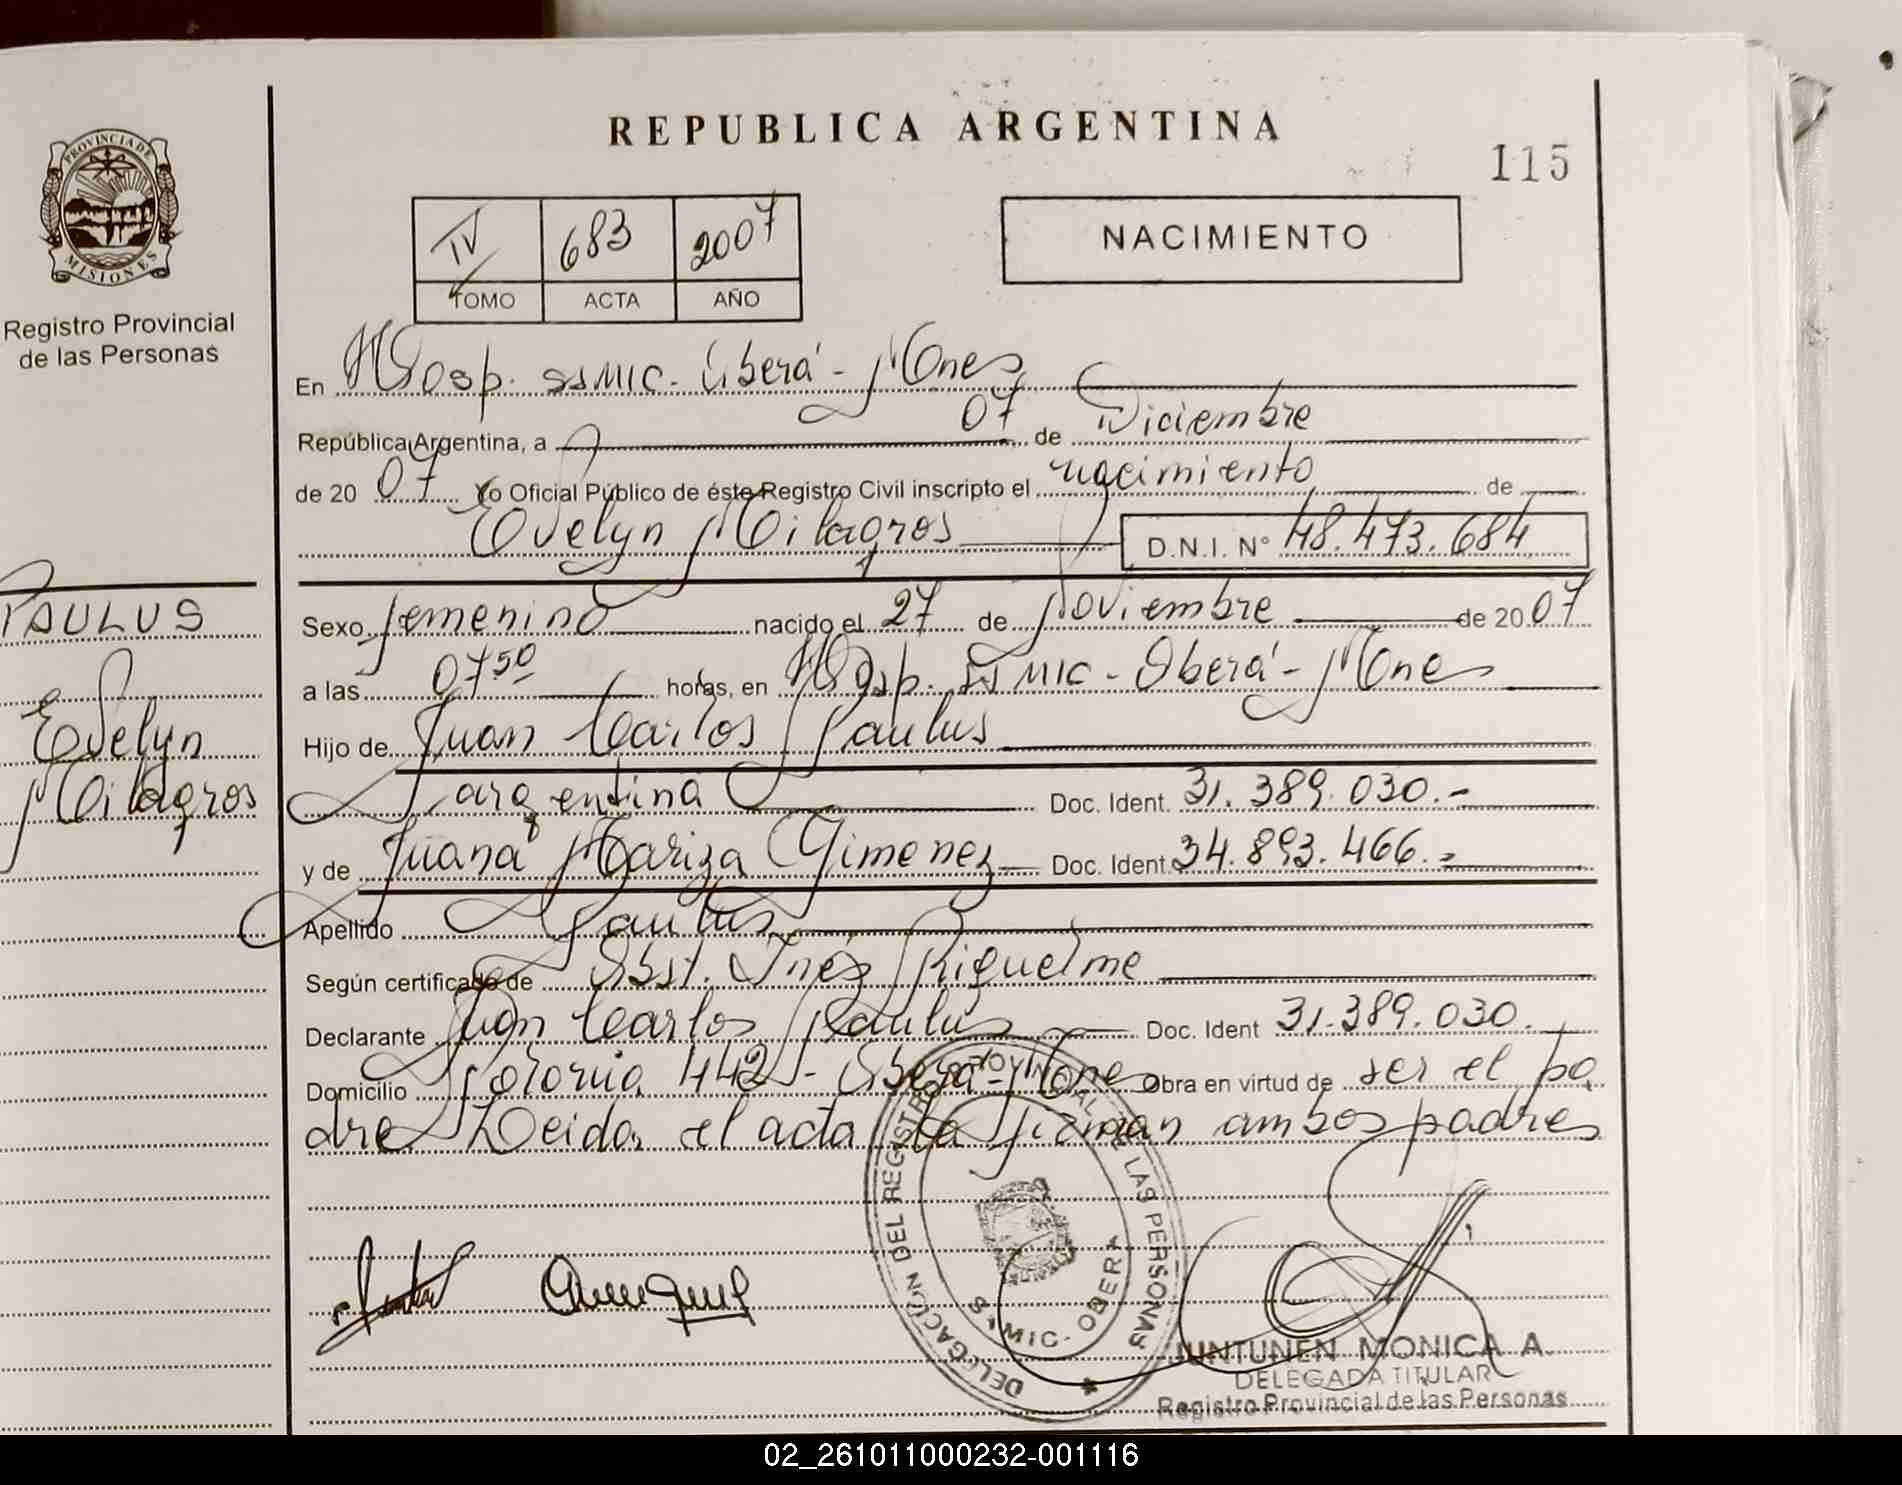 REPUBLICA ARGENTINA
115
PROVINCIA DE
MISIONES
Registro Provincial
de las Personas
IV 683 2007
TOMO ACTA AÑO
NACIMIENTO
En Hosp. SSMIC. Oberá - Mnes
República Argentina, a 07 de Diciembre
de 20 07 Yo Oficial Público de éste Registro Civil inscripto el nacimiento de
Evelyn Milagros D.N.I. N° 48.473.684
PAULUS
Evelyn
Milagros
Sexo femenino nacido el 27 de Noviembre de 20 07
a las 07 50 horas, en Hosp. SSMIC - Oberá - Mnes
Hijo de Juan Carlos Paulus
argentina Doc. Ident. 31.389.030.-
y de Juana Mariza Gimenez Doc. Ident. 34.893.466.-
Apellido Paulus
Según certificado de Obst. Inés Riquelme
Declarante Juan Carlos Paulus Doc. Ident 31.389.030.
Domicilio 442 - Oberá - Mnes Obra en virtud de ser el pa
dre Leida el acta la firman ambos padres
DELEGACIÓN DEL REGISTRO PROVINCIAL DE LAS PERSONAS
MIC - OBERA
JUNTUNEN MONICA A.
DELEGADA TITULAR
Registro Provincial de las Personas
02_261011000232-001116